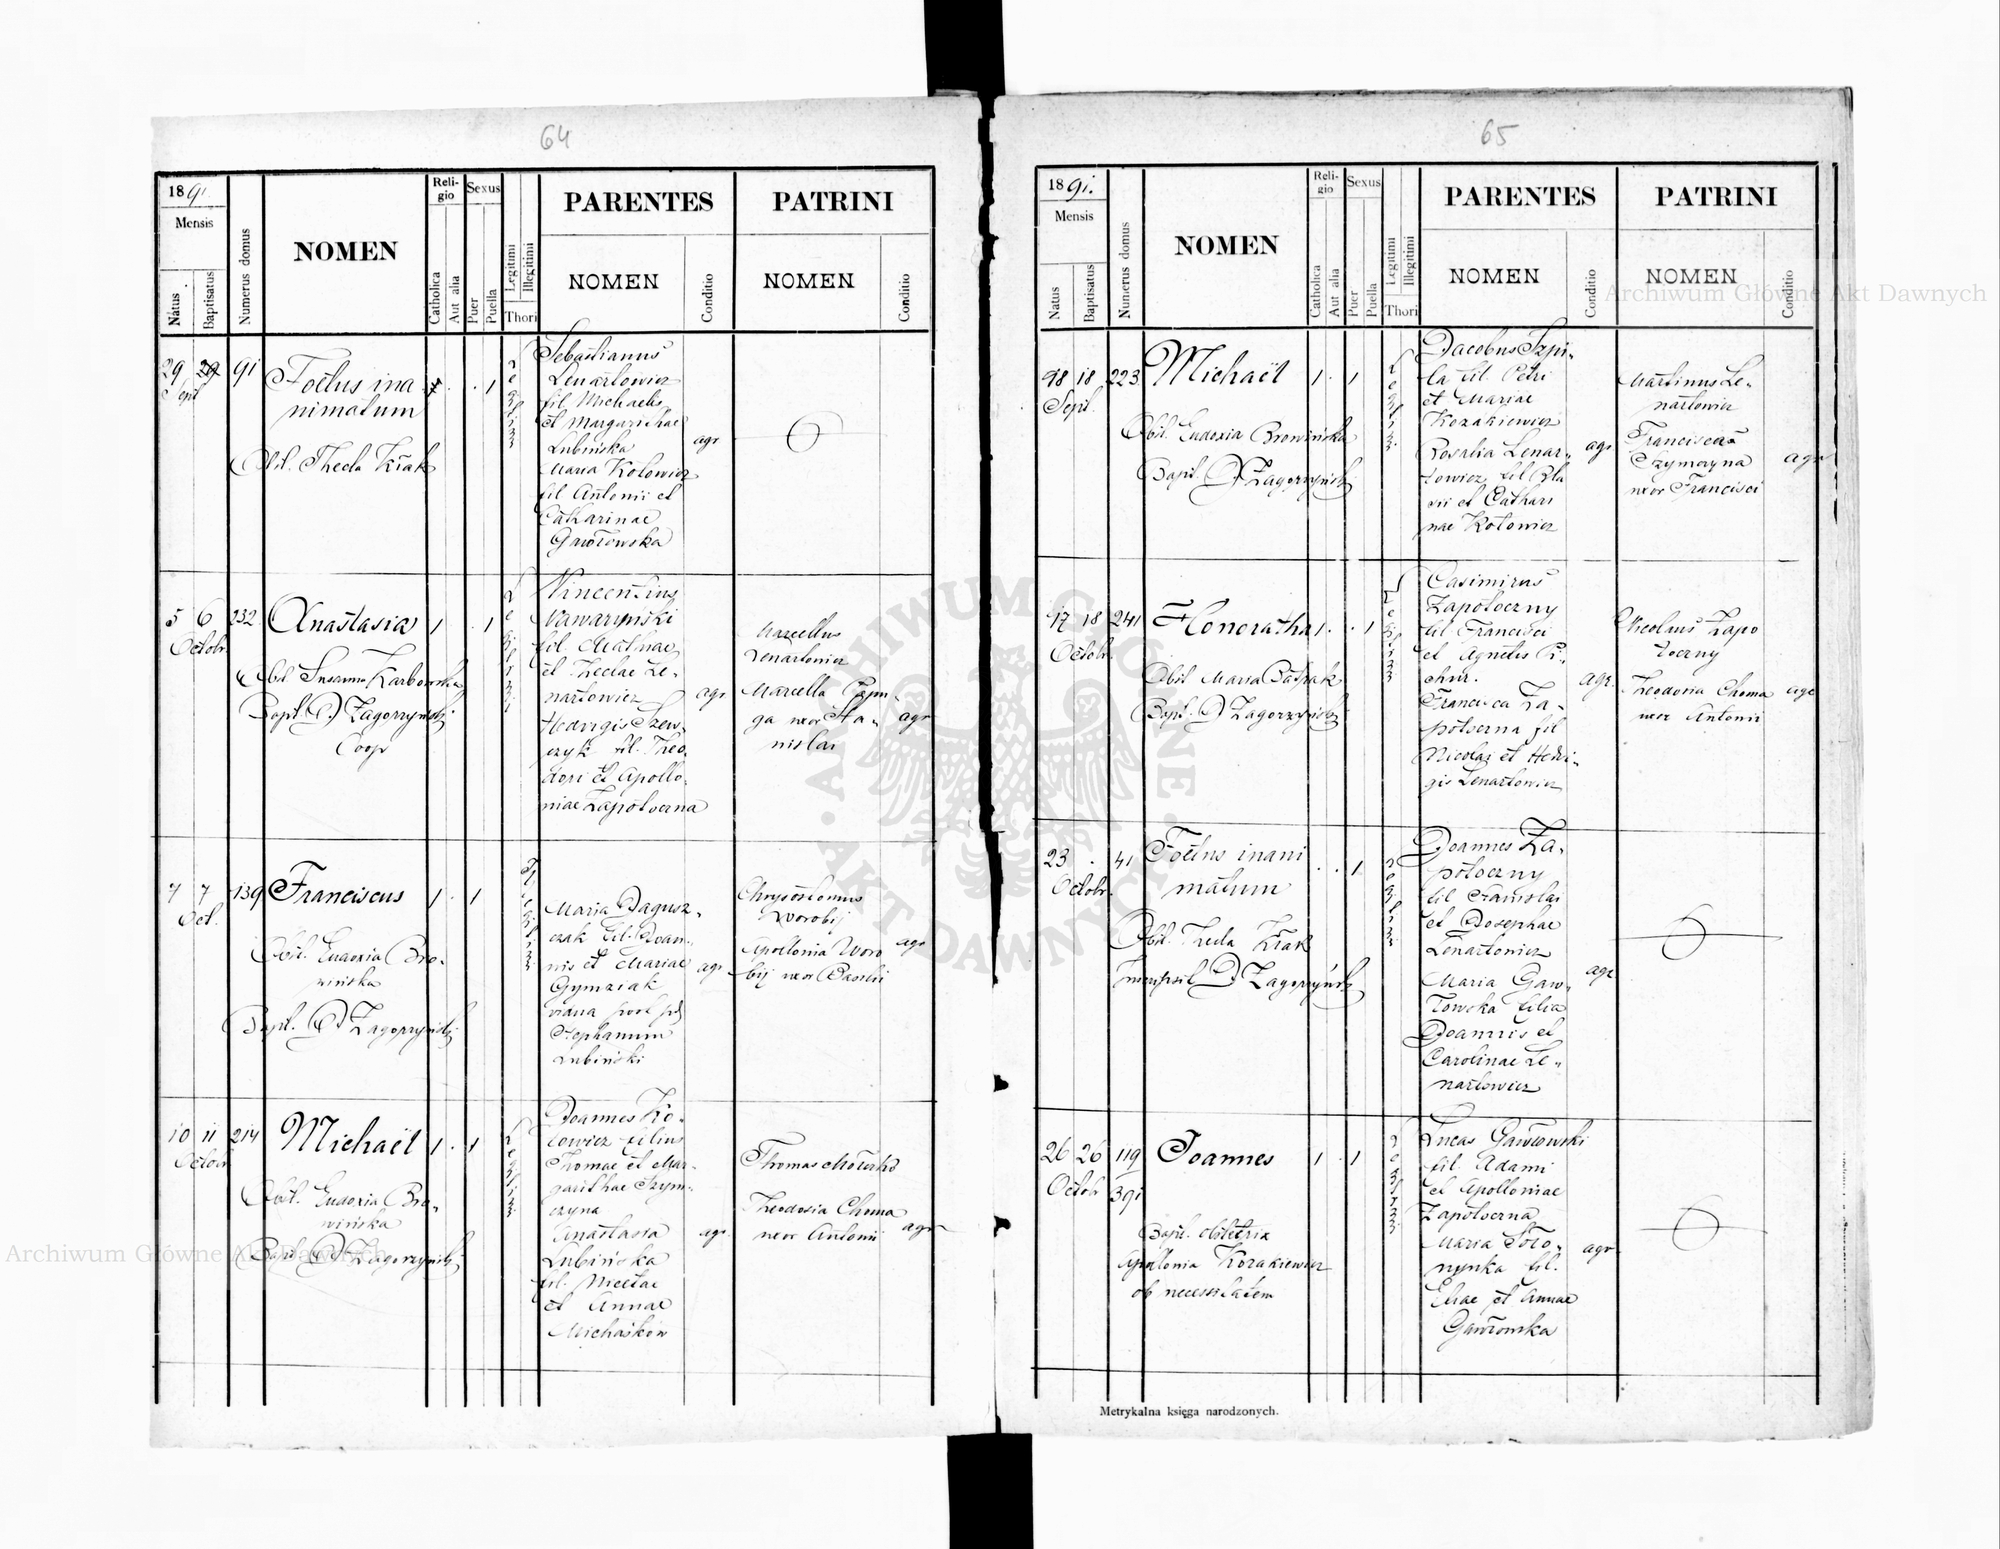 64
1891.
Mensis
Natus
Baptisatus
Numerus domus
NOMEN
Reli-
gio
Catholica
Aut alia
Sexus
Puer
Puella
Legitimi
Illegitimi
Thori
PARENTES
NOMEN
Conditio
PATRINI
NOMEN
Conditio
29 29 91
Sept
Foetus ina
nimatum
Obst. Thecla Kŕak
1
Legitimi
Sebastianus
Lenartowicz
fil Michaelis
et Margarithae
Lubińska
Maria Kotowicz
fil Antonii et
Catharinae
Gawłowska
agr
5 6 132
Octobr.
Anastasia
1 1
Obst Susanna Karbowska
Bapt. D Zagorzyński
Coop
Legitimi
Vincentius
Nawaryński
fil Mathiae
et Theclae Le-
nartowicz
Hedvigis Szew-
czyk fil. Theo-
dori et Apollo-
niae Zapotoczna
agr
Marcellus
Lenartowicz
Marcella
ga uxor Sta-
nislai
agr
7 7 139
Oct.
Franciscus
1 1
Obst. Eudoxia Bro-
wińska
Bapt. D Zagorzyński
Illegitimi
Maria Jagusz-
czak fil. Joan-
nis et Mariae
Gymziak
vidua post
Stephanum
Lubiński
agr
Chrysostomus
Worobij
Apollonia Woro
bij uxor Basilii
agr
10 11 214
Octobr
Michaël
1 1
Obst. Eudoxia Bro-
wińska
Bapt. D Zagorzyński
Legitimi
Joannes Ko-
towicz filius
Thomae et Mar-
garithae Szym-
czyna
Anastasia
Lubińska
fil. Nicetae
et Annae
Michaśków
agr.
Thomas
Theodosia Choma
uxor Antonii
agr
65
1891.
Mensis
Natus
Baptisatus
Numerus domus
NOMEN
Reli-
gio
Catholica
Aut alia
Sexus
Puer
Puella
Legitimi
Illegitimi
Thori
PARENTES
NOMEN
Conditio
PATRINI
NOMEN
Conditio
18 18 223
Sept.
Michaël
1 1
Obst. Eudoxia Browińska
Bapt. D Zagorzyński
Legitimi
Jacobus Szpi-
la fil. Petri
et Mariae
Kozakiewicz
Rosalia Lenar-
towicz fil Bla
sii et Cathari
nae Kotowicz
agr
Martinus Le-
nartowicz
Francisca
Szymczyna
uxor Francisci
agr
17 18 241
Octobr
Honoratha
1 1
Obst Maria
Bapt. D Zagorzyński
Legitimi
Casimirus
Zapotoczny
fil Francisci
et Agnetis Pi-
chur.
Francisca Za-
potoczna fil
Nicolai et Hedvi-
gis Lenartowicz
agr.
Nicolaus Zapo
toczny
Theodosia Choma
uxor Antonii
agr
23 . 41
Octobr.
Foetus inani
matum
1
Obst. Thecla Kŕak
D Zagorzyński
Legitimi
Joannes Za-
potoczny
fil Stanislai
et Josephae
Lenartowicz
Maria Gaw-
łowska filia
Joannis et
Carolinae Le-
nartowicz
agr
26 26 119
Octobr 391
Joannes
1 1
Bapt. obstetrix
Apollonia Kozakiewicz
ob necessitatem
Legitimi
Lucas Gawłowski
fil. Adami
et Apolloniae
Zapotoczna
Maria Soło-
nynka fil.
Eliae et Annae
Gawłowska
agr
Metrykalna księga narodzonych.
Archiwum Główne Akt Dawnych
Archiwum Główne Akt Dawnych
ARCHIWUM GŁÓWNE AKT DAWNYCH